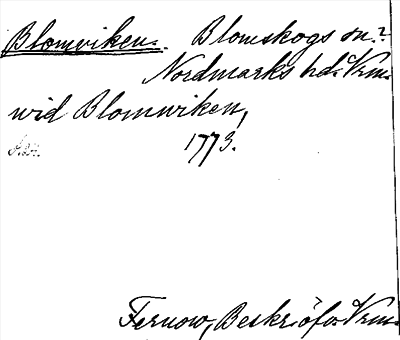 Blomviken. Blomskogs sn?
Nordmarks hd. Vrm.
wid Blomwiken,
1773.
Fernow, Beskr. öfver Vrm.